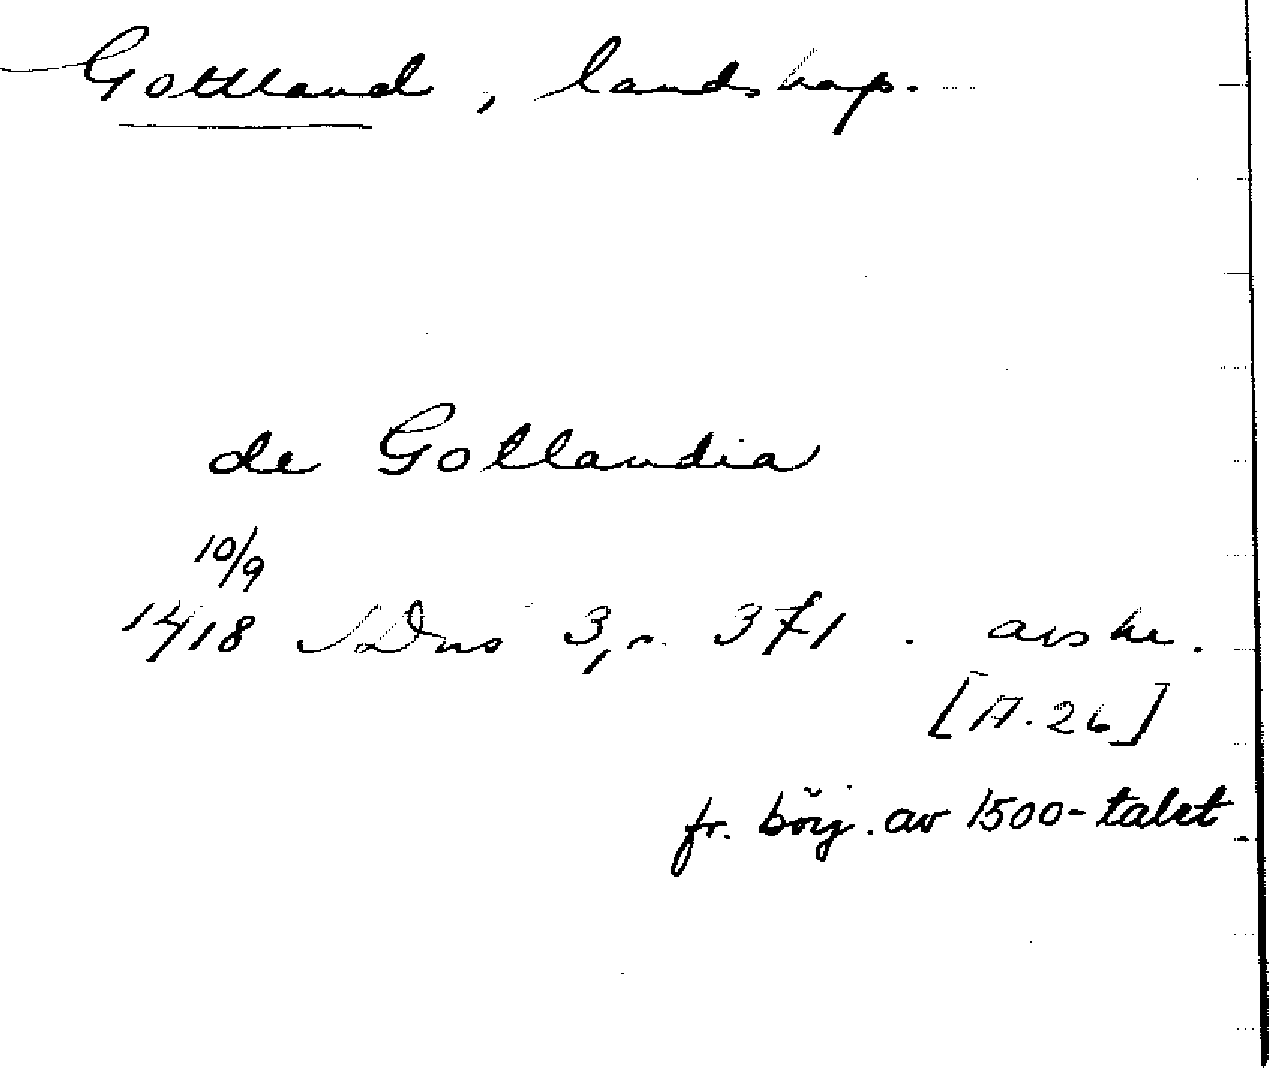 Gottland, landskap.
de Gotlandia
10/9
1418 SDns 3, s. 371. avskr.
[A. 26]
fr. börj. av 1500-talet